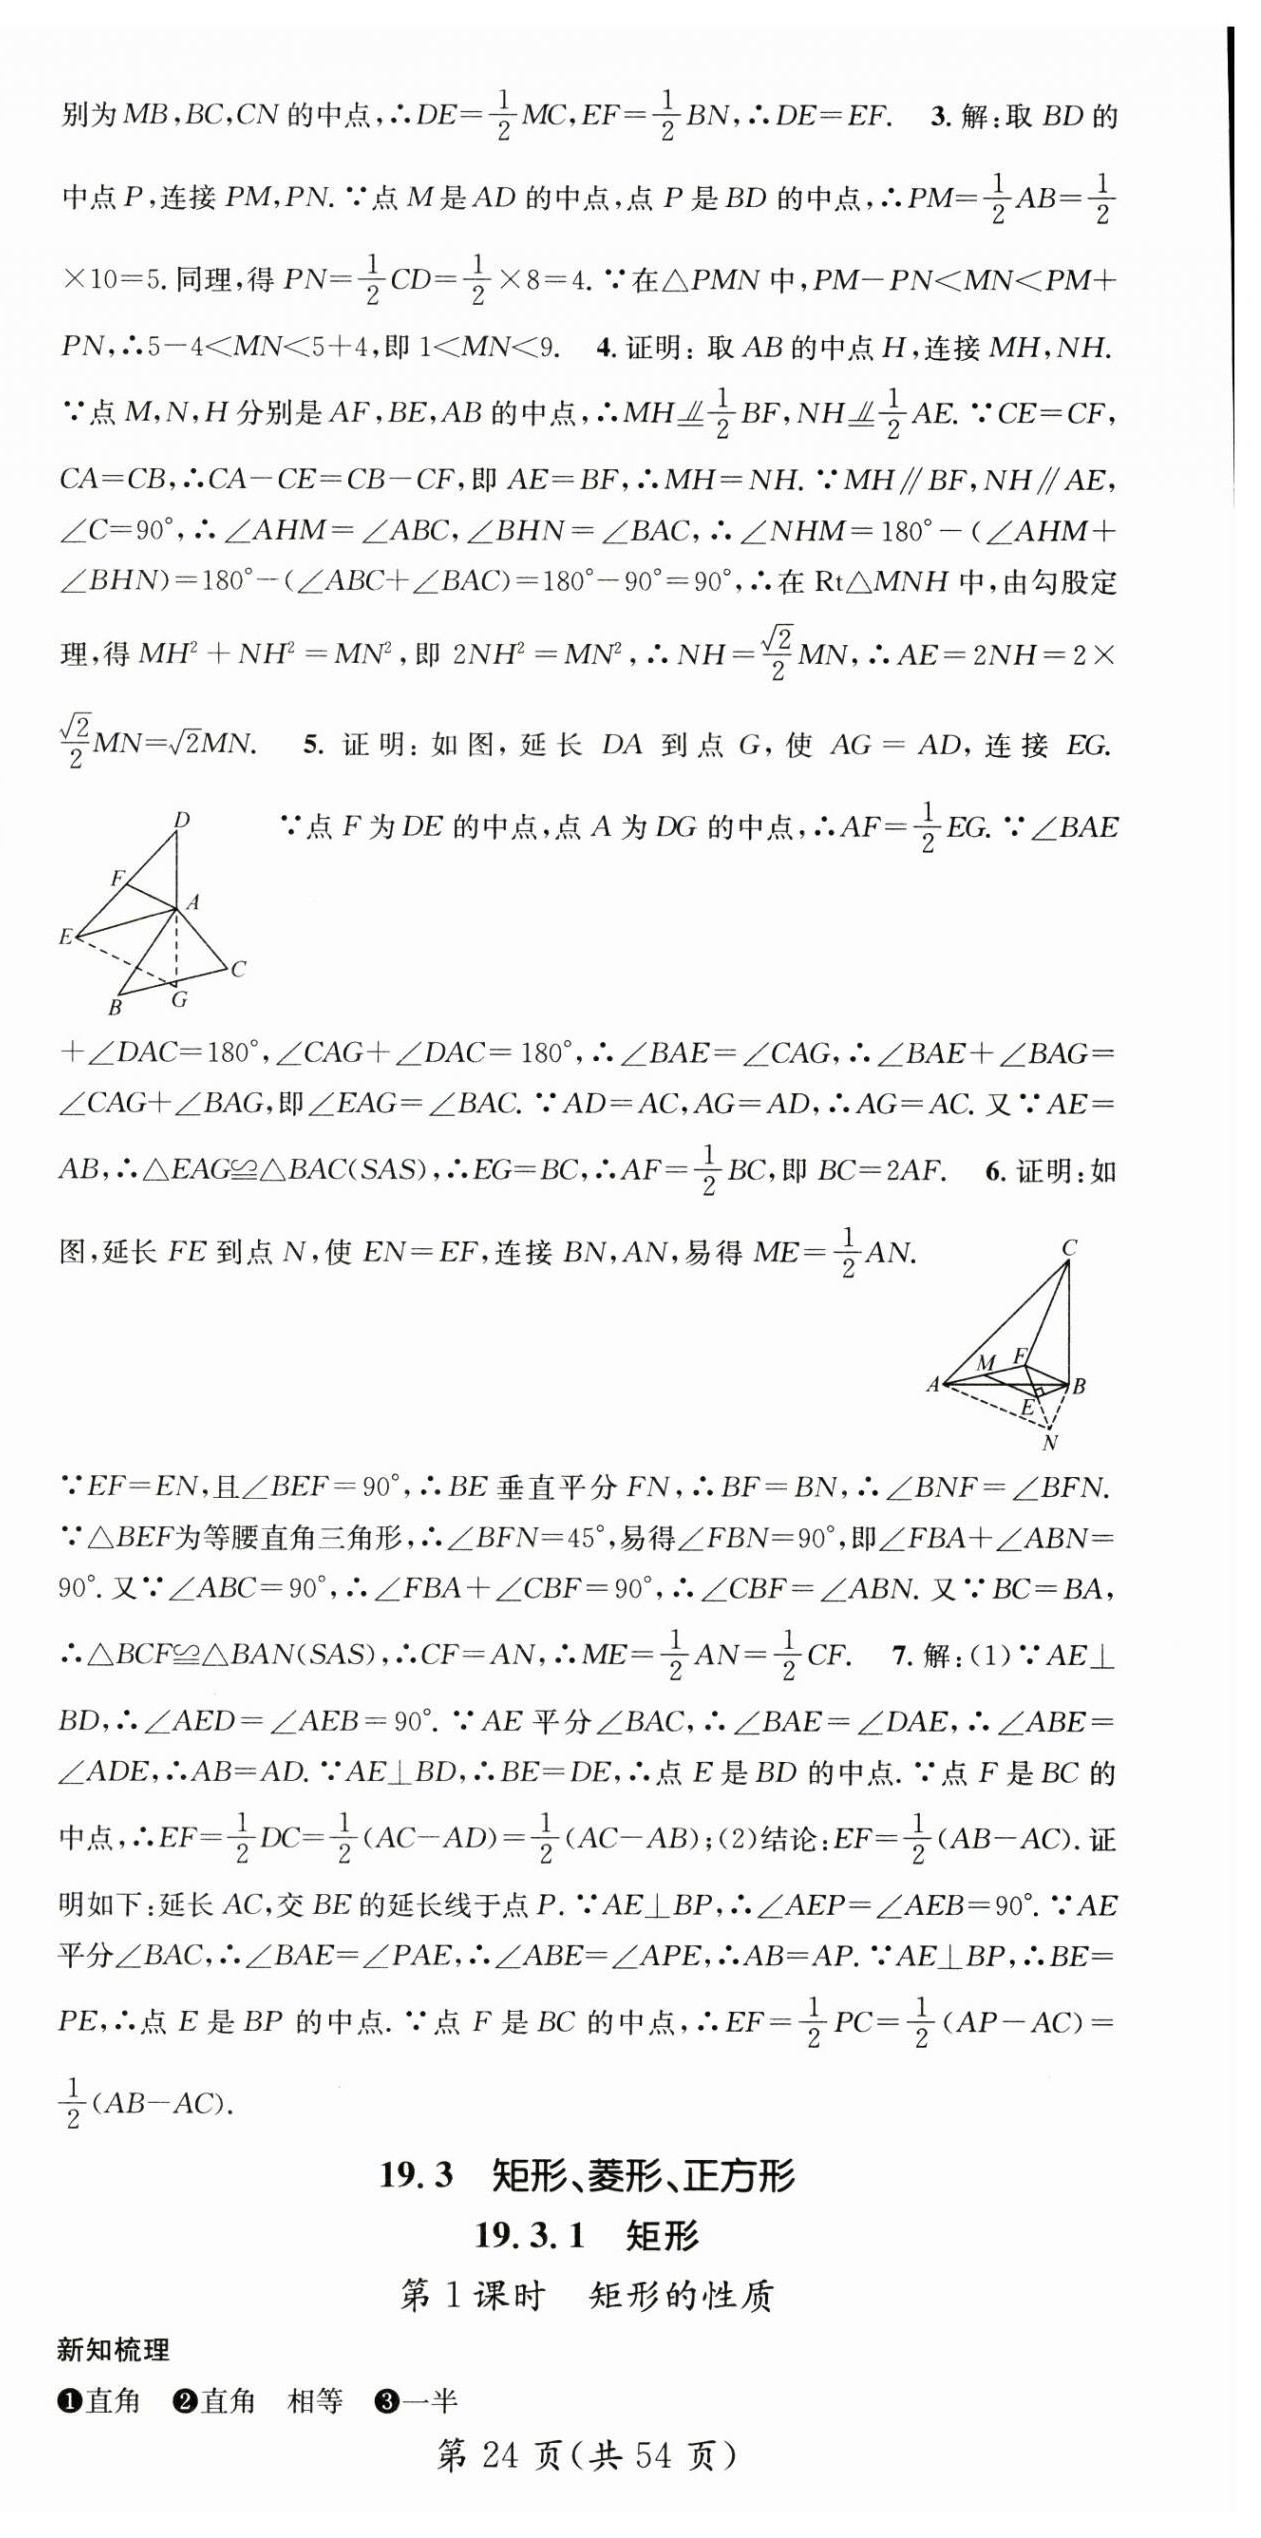 别为MB,BC,CN的中点,∴DE=1/2MC,EF=1/2BN,∴DE=EF. 3.解:取BD的
中点P,连接PM,PN.∵点M是AD的中点,点P是BD的中点,∴PM=1/2AB=1/2
×10=5.同理,得PN=1/2CD=1/2×8=4.∵在△PMN中,PM-PN<MN<PM+
PN,∴5-4<MN<5+4,即1<MN<9. 4.证明:取AB的中点H,连接MH,NH.
∵点M,N,H分别是AF,BE,AB的中点,∴MH⫽1/2BF,NH⫽1/2AE.∵CE=CF,
CA=CB,∴CA-CE=CB-CF,即AE=BF,∴MH=NH.∵MH∥BF,NH∥AE,
∠C=90°,∴∠AHM=∠ABC,∠BHN=∠BAC,∴∠NHM=180°-(∠AHM+
∠BHN)=180°-(∠ABC+∠BAC)=180°-90°=90°,∴在Rt△MNH中,由勾股定
理,得MH²+NH²=MN²,即2NH²=MN²,∴NH=√2/2MN,∴AE=2NH=2×
√2/2MN=√2MN. 5.证明:如图,延长DA到点G,使AG=AD,连接EG.
∵点F为DE的中点,点A为DG的中点,∴AF=1/2EG.∵∠BAE
D
F
A
E
C
B
G
+∠DAC=180°,∠CAG+∠DAC=180°,∴∠BAE=∠CAG,∴∠BAE+∠BAG=
∠CAG+∠BAG,即∠EAG=∠BAC.∵AD=AC,AG=AD,∴AG=AC.又∵AE=
AB,∴△EAG≌△BAC(SAS),∴EG=BC,∴AF=1/2BC,即BC=2AF. 6.证明:如
图,延长FE到点N,使EN=EF,连接BN,AN,易得ME=1/2AN.
C
M F
A B
E
N
∵EF=EN,且∠BEF=90°,∴BE垂直平分FN,∴BF=BN,∴∠BNF=∠BFN.
∵△BEF为等腰直角三角形,∴∠BFN=45°,易得∠FBN=90°,即∠FBA+∠ABN=
90°.又∵∠ABC=90°,∴∠FBA+∠CBF=90°,∴∠CBF=∠ABN.又∵BC=BA,
∴△BCF≌△BAN(SAS),∴CF=AN,∴ME=1/2AN=1/2CF. 7.解:(1)∵AE⊥
BD,∴∠AED=∠AEB=90°.∵AE平分∠BAC,∴∠BAE=∠DAE,∴∠ABE=
∠ADE,∴AB=AD.∵AE⊥BD,∴BE=DE,∴点E是BD的中点.∵点F是BC的
中点,∴EF=1/2DC=1/2(AC-AD)=1/2(AC-AB);(2)结论:EF=1/2(AB-AC).证
明如下:延长AC,交BE的延长线于点P.∵AE⊥BP,∴∠AEP=∠AEB=90°.∵AE
平分∠BAC,∴∠BAE=∠PAE,∴∠ABE=∠APE,∴AB=AP.∵AE⊥BP,∴BE=
PE,∴点E是BP的中点.∵点F是BC的中点,∴EF=1/2PC=1/2(AP-AC)=
1/2(AB-AC).
19.3 矩形、菱形、正方形
19.3.1 矩形
第1课时 矩形的性质
新知梳理
❶直角 ❷直角 相等 ❸一半
第24页(共54页)